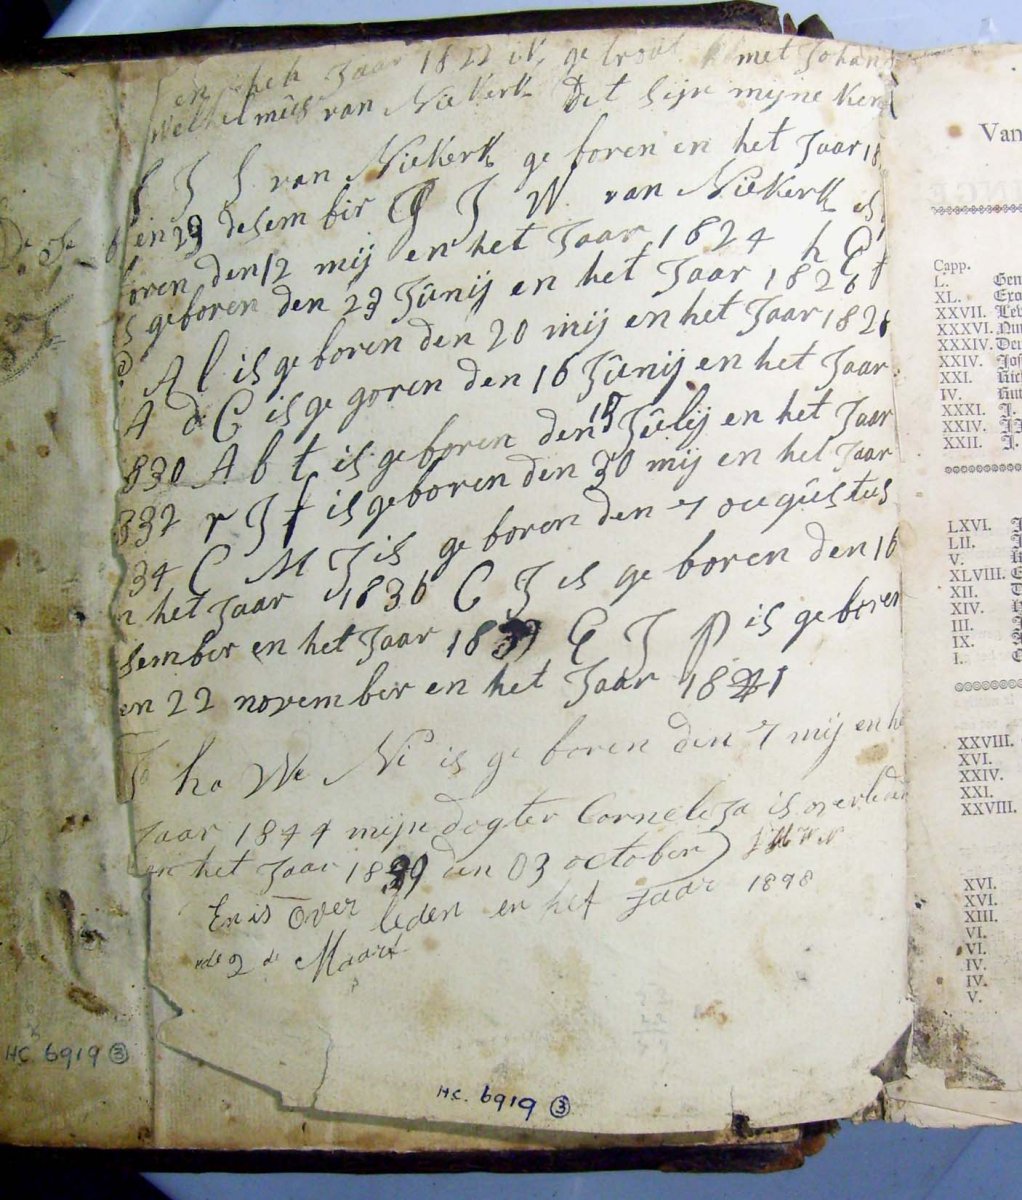 en het Jaar 1822 ik getrout met Johann
Welhelmüs van Niekerk Det sijn mijne Ken
J J J van Niekerk ge boren en het Jaar 18
en 29 desem bir G J W van Niekerk is
oren den 12 mij en het Jaar 1824 h C t
is geboren den 29 Jûnij en het Jaar 1826
A l is ge boren den 20 mij en het Jaar 182
A d C is ge goren den 16 Jûnij en het Jaar
830 A b t is ge boren den Jûlij en het Jaar
832 r J f is geboren den 30 mij en het Jaar
34 C M J is ge boren den 7 ougûstus
n het Jaar 1836 C J is ge boren den 16
sember en het Jaar 18 G J P is geboren
en 22 november en het Jaar 1841
J ha We Ni is ge boren den 7 mij en he
Jaar 1844 mijn dogter Corneleja is overleden
en het Jaar 1839 den 03 october
En is Over leden en het Jaar 1898
de 2 de Maart
HC. 6919 ③
HC. 6919 ③
Van
Capp.
L. Gen
XL. Exo
XXVII. Lev
XXXVI. Num
XXXIV. Deu
XXIV. Jos
XXI. Rich
IV. Rut
XXXI. J.
XXIV. JJ
XXII. J.
LXVI.
LII.
V.
XLVIII.
XII.
XIV.
III.
IX.
I.
XXVIII.
XVI.
XXIV.
XXI.
XXVIII.
XVI.
XVI.
XIII.
VI.
VI.
IV.
IV.
V.